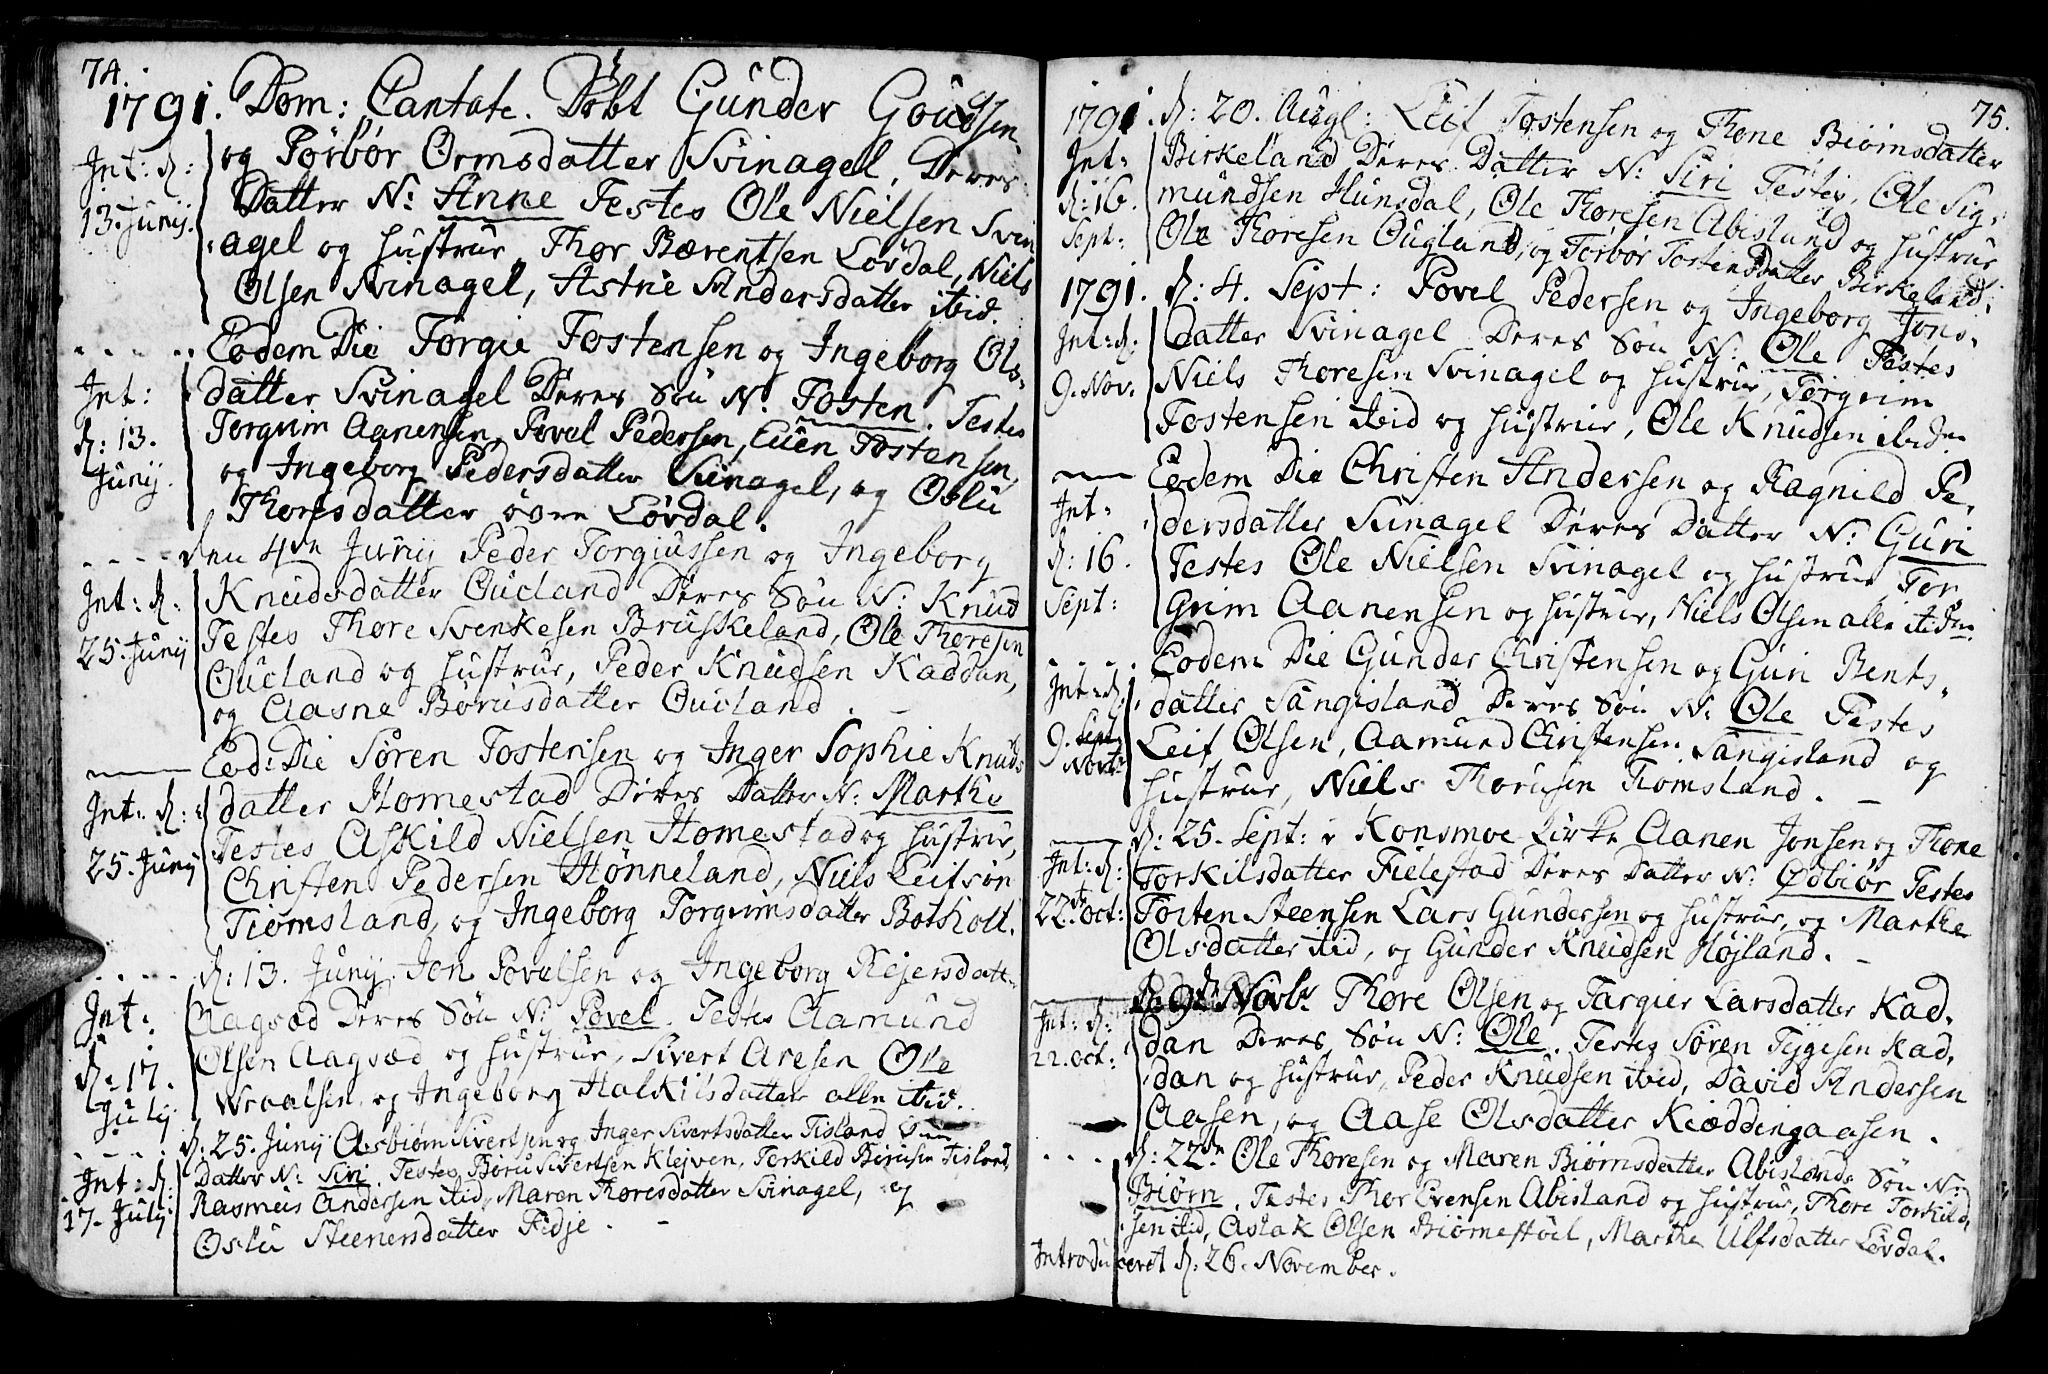 74.
1791. Dom: Cantate. Döbt Gunder Goudsen
Int: d: 13. Junij. og Torbör Ormsdatter Svinagel, Deres
Datter N: Anne Testes Ole Nielsen Svin
agel og hustrue, Thor Bærentsen Lövdal, Niels
Olsen Svinagel, Astrie Andersdatter ibid.
Eodem Die Torgie Tostensen og Ingeborg Ols-
Int: d: 13. Junij. datter Svinagel Deres Sön N. Tosten. Testes
Torgrim Aanensen, Povel Pedersen, Even Tostensen,
og Ingeborg Pedersdatter Svinagel, og Oslu
Thoresdatter övre Lövdal.
den 4de Junij Peder Torgiussen og Ingeborg
Int: d: 25. Junij Knudsdatter Oucland Deres Sön N: Knud
Testes Thore Svenkesen Bruskeland, Ole Thoresen
Oucland og hustrue, Peder Knudsen Kaddan,
og Aasne Börusdatter Oucland.
Eod: Die Sören Tostensen og Inger Sophie Knuds
Int: d: 25. Junij datter Homestad Deres Datter N: Marthe
Testes Askild Nielsen Homestad og hustrue,
Christen Pedersen Hönneland, Niels Leifsön
Tiomsland, og Ingeborg Torgrimsdatter Botholt.
d: 13. Junij. Jon Povelsen og Ingeborg Rejersdatt.
Int: d: 17. Julij Aagsæd Deres Sön N: Povel. Testes Aamund
Olsen Aagsæd og hustrue, Sivert Aresen, Ole
Wraalsen og Ingeborg Halkilsdatter alle ibid.
d: 25. Junij Aasbiörn Sivertsen og Inger Sivertsdatter Tisland
Int: d: 17. Julij Datter N: Siri. Testes, Böru Sivertsen Klejven, Torkild Börusen Tisland,
Rasmus Andersen ibid, Maren Thoresdatter Svinagel, og
Oslu Steenersdatter Fidje.
75.
1791. d: 20. Augl: Leif Tostensen og Thone Biörnsdatter
Int: d: 16. Sept: Birkeland Deres Datter N: Siri Testes, Ole Sig-
mundsen Hunsdal, Ole Thoresen Abisland og hustrue
Ole Thoresen Ougland, og Torbör Tostensdatter Birkeland.
1791. d: 4. Sept: Povel Pedersen og Ingeborg Jons-
Int: d: 9. Nov. datter Svinagel Deres Sön N: Ole Testes
Niels Thoresen Svinagel og hustrue, Torgrim
Tostensen ibid og hustrue, Ole Knudsen ibidm
Eodem Die Christen Andersen og Ragnild Pe-
Int: d: 16. Sept: dersdatter Svinagel Deres Datter N: Guri
Testes Ole Nielsen Svinagel og hustrue, Tor-
grim Aanensen og hustrue, Niels Olsen alle ibidm
Eodem Die Gunder Christensen og Guri Bents-
Int: d: 9. Sept Novbr datter Sangisland Deres Sön N: Ole Testes
Leif Olsen, Aamund Christensen Sangisland og
hustrue, Niels Thorusen Tiomsland.
d: 25. Sept: i Konsmoe Kirke Aanen Jonsen og Thone
Int: d: 22de Oct: Torkilsdatter Fielestad Deres Datter N: Ødbiör Testes
Tosten Steensen Lars Gundersen og hustrue, og Marthe
Olsdatter ibid, og Gunder Knudsen Højland.
d: 9de Novbr Thore Olsen og Targier Larsdatter Kad-
Int: d: 22. Oct: dan Deres Sön N: Ole. Testes Sören Tejgesen Kad-
dan og hustrue, Peder Knudsen ibid, David Andersen
Aasen, og Aase Olsdatter Kiæddingaasen.
d: 22de Ole Thoresen og Maren Biörnsdatter Abislands Sön N:
Biörn. Testes Thor Evensen Abisland og hustrue, Thore Torkild-
sen ibid, Aslak Olsen Biörnestöel, Marthe Ulfsdatter Lövdal.
Introduceret d: 26. November.